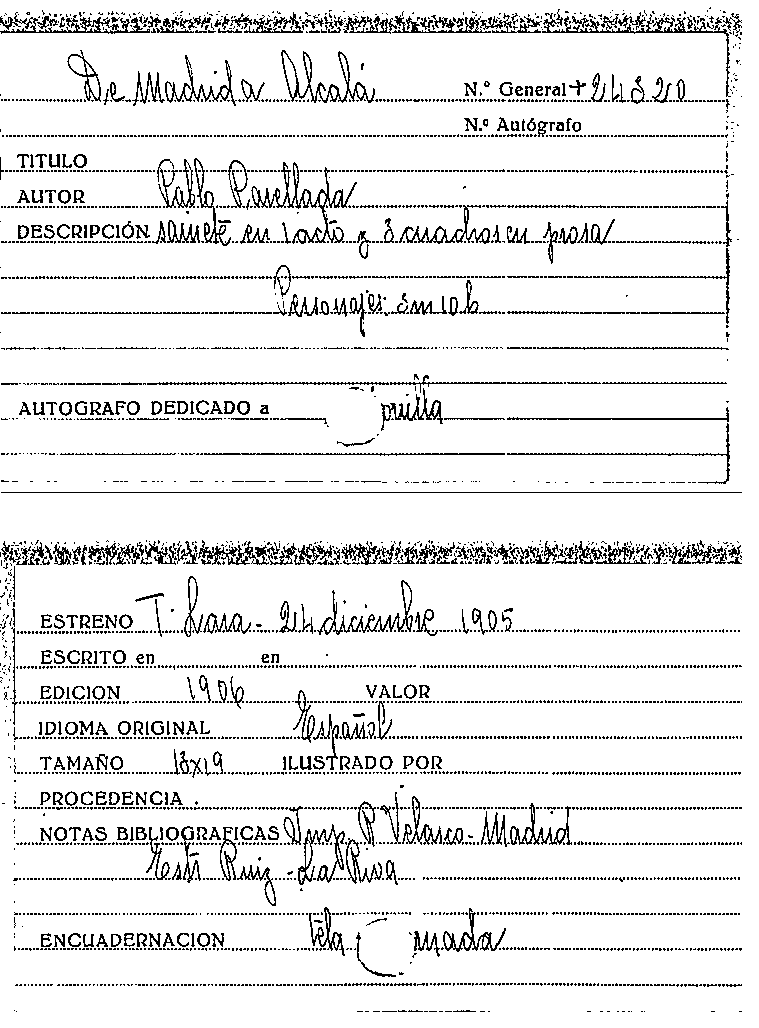 De Madrid a Alcalá N.º General + 24320
N.º Autógrafo
TITULO
AUTOR Pablo Parellada
DESCRIPCIÓN sainete en 1 acto y 3 cuadros en prosa
Personajes: 3m 10 h
AUTOGRAFO DEDICADO a
ESTRENO T. Lara - 24 diciembre 1905
ESCRITO en en
EDICION 1906 VALOR
IDIOMA ORIGINAL Español
TAMAÑO 13x19 ILUSTRADO POR
PROCEDENCIA.
NOTAS BIBLIOGRAFICAS Imp. R Velasco - Madrid
Estr Ruiz - La Riva
ENCUADERNACION tela